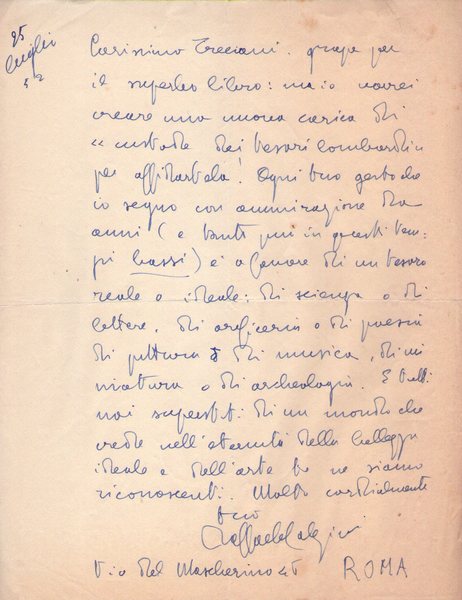 25
luglio
52
Carissimo Treccani. grazie per
il superbo libro: ma io vorrei
creare una nuova carica di
"custode dei tesori lombardi"
per affidartela! Ogni tuo gesto che
io seguo con ammirazione da
anni (e tanto più in questi tem-
pi bassi) è a favore di un tesoro
reale o ideale: di scienza o di
lettere, di oreficeria o di poesia
di pittura o di musica, di mi
niatura o di archeologia. E tutti
noi superstiti di un mondo che
crede nell'eternità della bellezza
ideale e dell'arte te ne siamo
riconoscenti. Molto cordialmente
tuo
Raffaele Calzini
Via del Mascherino 46 ROMA